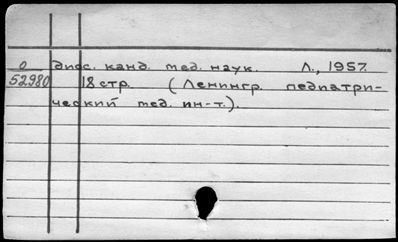 О дисс. канд. мед. наук. Л., 1957.
52980 18 стр. (Ленингр. педиатри-
ческий мед. ин-т.).